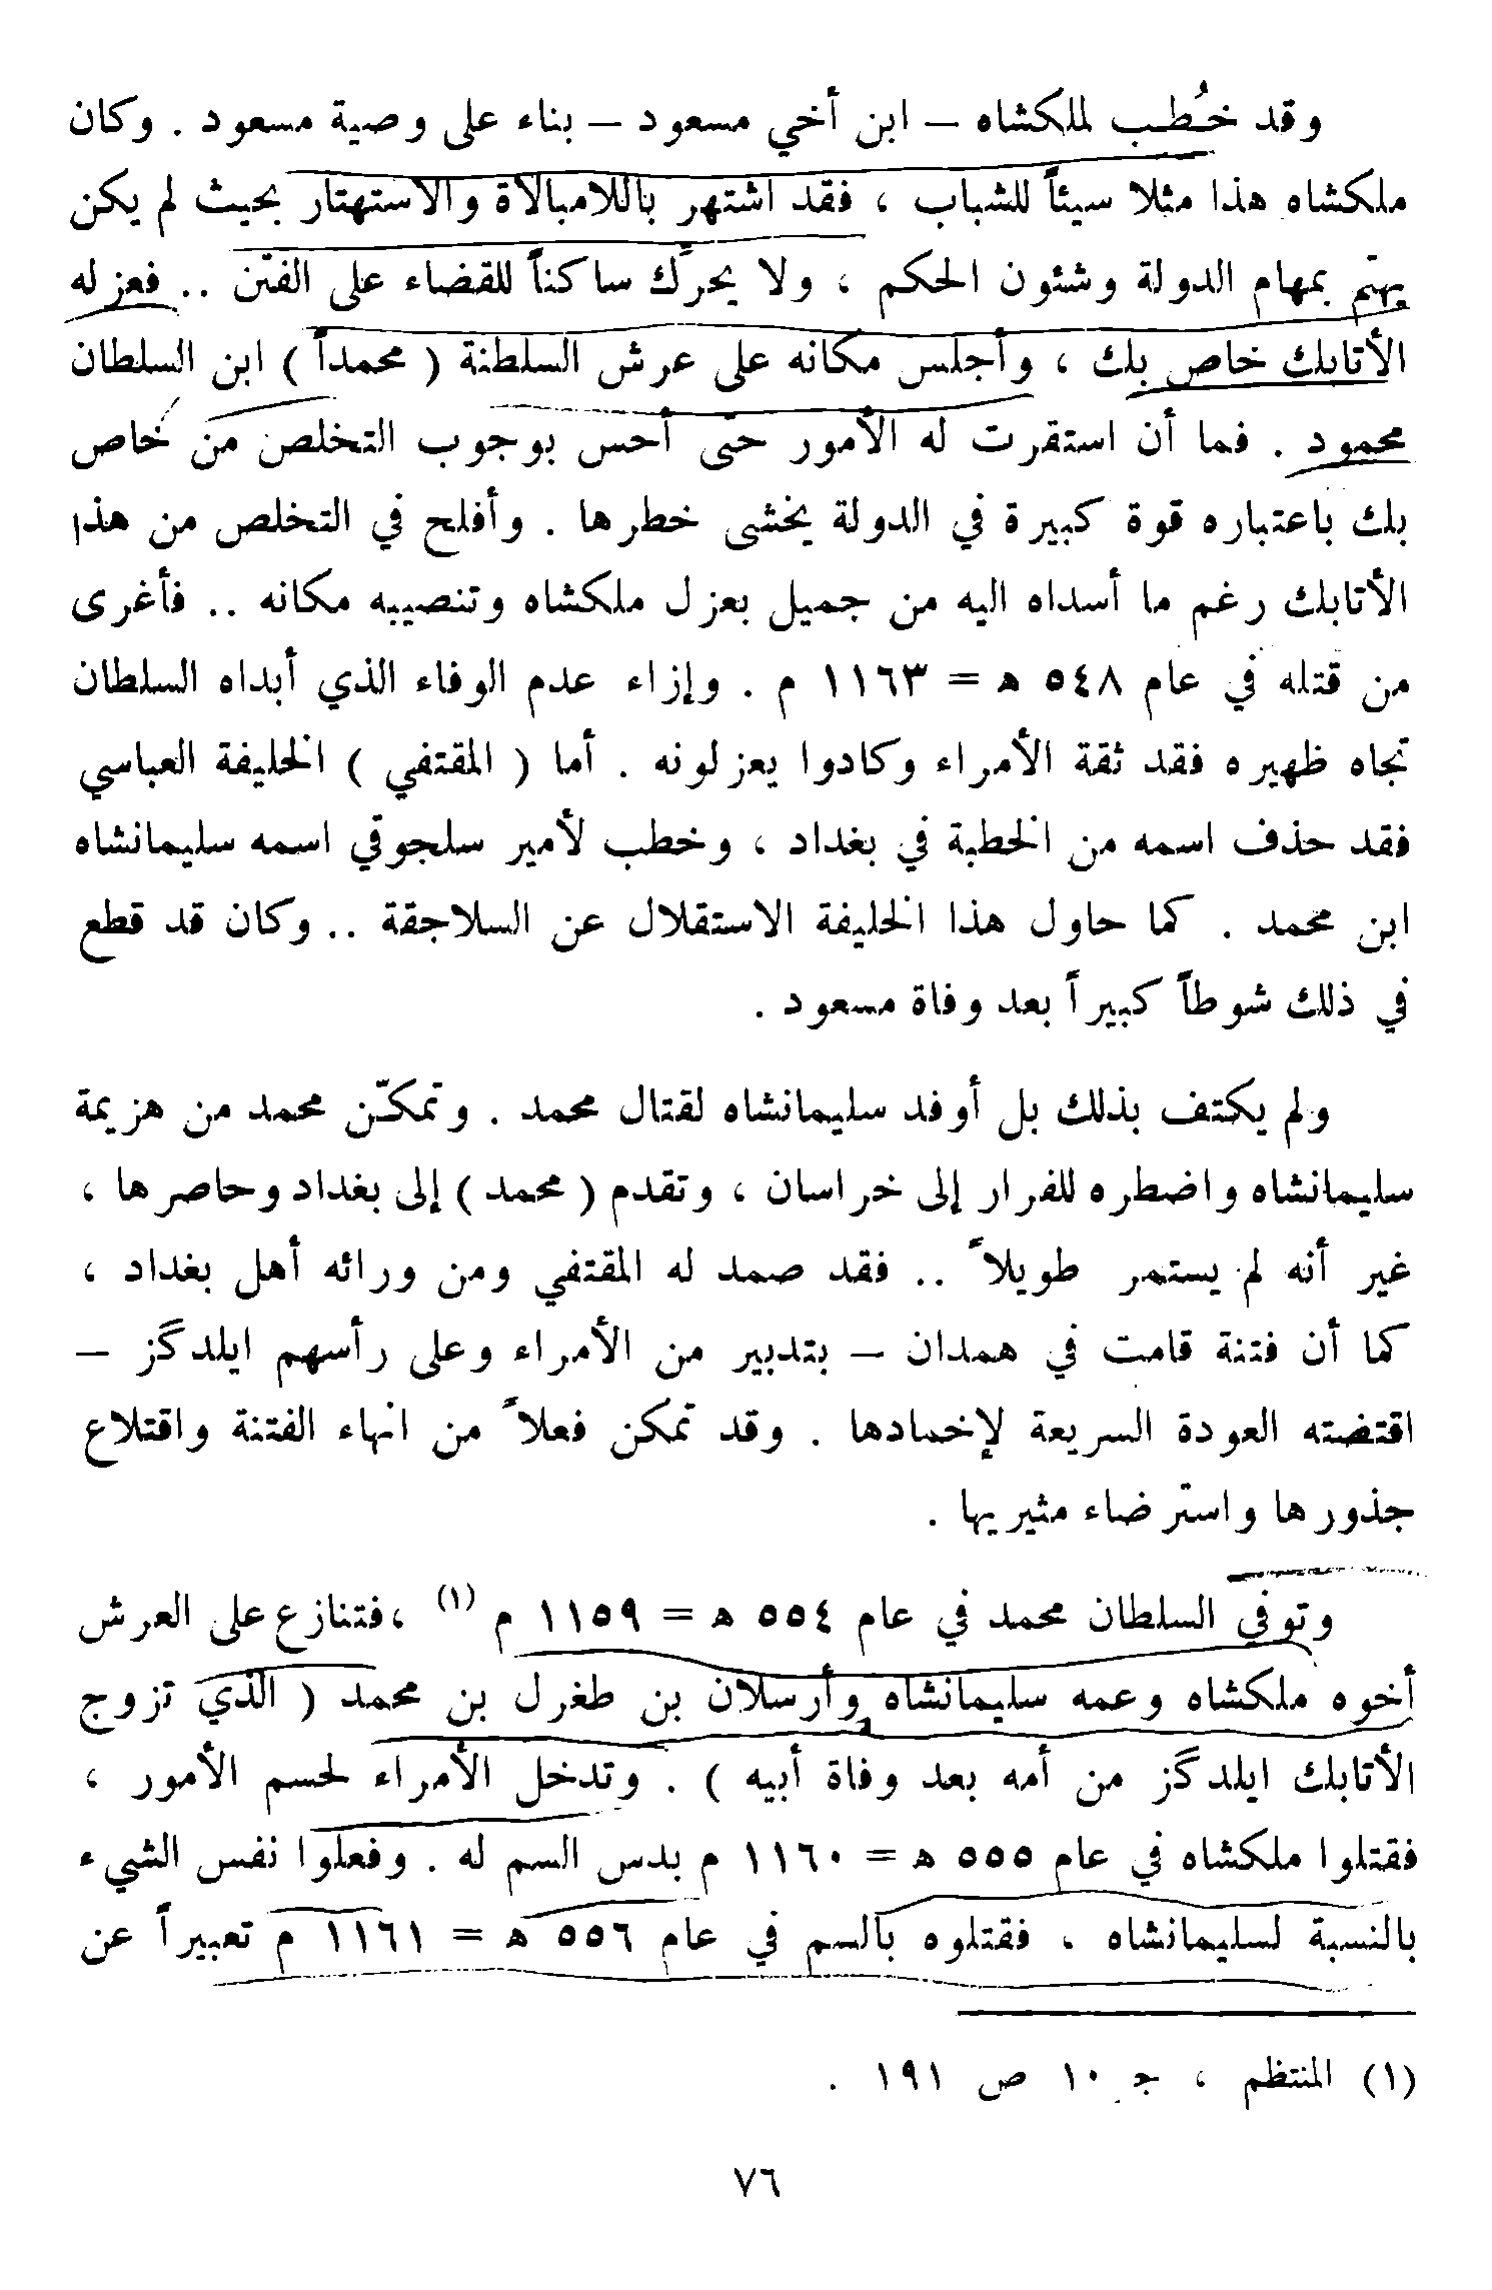 وقد خُطب لملكشاه – ابن أخي مسعود – بناء على وصية مسعود . وكان
ملكشاه هذا مثلا سيئاً للشباب ، فقد اشتهر باللامبالاة والاستهتار بحيث لم يكن
يهتم بمهام الدولة وشئون الحكم ، ولا يحرّك ساكناً للقضاء على الفتن .. فعزله
الأتابك خاص بك ، وأجلس مكانه على عرش السلطنة ( محمداً ) ابن السلطان
محمود . فما أن استقرت له الأمور حتى أحس بوجوب التخلص من خاص
بك باعتباره قوة كبيرة في الدولة يخشى خطرها . وأفلح في التخلص من هذا
الأتابك رغم ما أسداه اليه من جميل بعزل ملكشاه وتنصيبه مكانه .. فأغرى
من قتله في عام ٥٤٨ ه = ١١٦٣ م . وإزاء عدم الوفاء الذي أبداه السلطان
تجاه ظهيره فقد ثقة الأمراء وكادوا يعزلونه . أما ( المقتفي ) الخليفة العباسي
فقد حذف اسمه من الخطبة في بغداد ، وخطب لأمير سلجوقي اسمه سليمانشاه
ابن محمد . كما حاول هذا الخليفة الاستقلال عن السلاجقة .. وكان قد قطع
في ذلك شوطاً كبيراً بعد وفاة مسعود .
ولم يكتف بذلك بل أوفد سليمانشاه لقتال محمد . وتمكّن محمد من هزيمة
سليمانشاه واضطره للفرار إلى خراسان ، وتقدم ( محمد ) إلى بغداد وحاصرها ،
غير أنه لم يستمر طويلاً .. فقد صمد له المقتفي ومن ورائه أهل بغداد ،
كما أن فتنة قامت في همدان – بتدبير من الأمراء وعلى رأسهم ايلدگز –
اقتضته العودة السريعة لإخمادها . وقد تمكن فعلاً من انهاء الفتنة واقتلاع
جذورها واسترضاء مثيريها .
وتوفي السلطان محمد في عام ٥٥٤ ه = ١١٥٩ م (١) ،فتنازع على العرش
أخوه ملكشاه وعمه سليمانشاه وأرسلان بن طغرل بن محمد ( الذي تزوج
الأتابك ايلدگز من أمه بعد وفاة أبيه ) . وتدخل الأمراء لحسم الأمور ،
فقتلوا ملكشاه في عام ٥٥٥ ه = ١١٦٠ م بدس السم له . وفعلوا نفس الشيء
بالنسبة لسليمانشاه ، فقتلوه بالسم في عام ٥٥٦ ه = ١١٦١ م تعبيراً عن
(١) المنتظم ، ج ١٠ ص ١٩١ .
٧٦